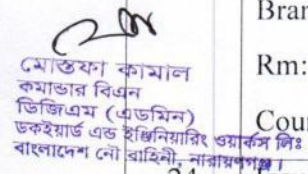 Bran
মোস্তফা কামাল
Rm:
কমান্ডার বিএন
ডিজিএম (এডমিন)
Coun
ডকইয়ার্ড এন্ড ইঞ্জিনিয়ারিং ওয়ার্কস লিঃ
বাংলাদেশ নৌ বাহিনী, নারায়ণগঞ্জ।
24